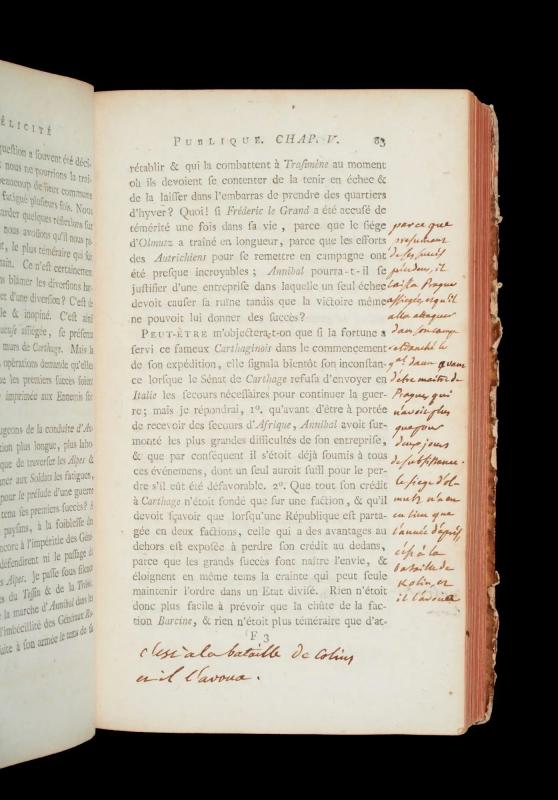 ÉLICITÉ
question a souvent été déci-
nous ne pourrions la trai-
beaucoup de lieux communs
fatigué plusieurs fois. Nous
arder quelques réflexions sur
nous avoissions qu'il nous pa-
le plus téméraire qui fut
Ce n'est certainement
blâmer les diversions hu-
d'une diversion? C'est de
le & inopiné. C'est ainsi
cuse assiégée, se présenta
murs de Carthage. Mais la
opérations demande qu'elles
que les premiers succès soient
imprimée aux Ennemis soit
ugeons de la conduite d'An-
tion plus longue, plus labo-
que de traverser les Alpes &
ncer aux Soldats les fatigues,
pour le prélude d'une guerre
tena ses premiers succès? A
paysans, à la foiblesse de
encore à l'impéritie des Géné-
défendirent ni le passage de
Alpes. Je passe sous silence
du Tessin & de la Trébie,
la marche d'Annibal dans les
l'imbécillité des Généraux Ro-
duite à son armée le tems de se
PUBLIQUE. CHAP. V. 83
rétablir & qui la combattent à Trasimène au moment
où ils devoient se contenter de la tenir en échec &
de la laisser dans l'embarras de prendre des quartiers
d'hyver? Quoi! si Fréderic le Grand a été accusé de
témérité une fois dans sa vie, parce que le siége
d'Olmutz a traîné en longueur, parce que les efforts
des Autrichiens pour se remettre en campagne ont
été presque incroyables; Annibal pourra-t-il se
justifier d'une entreprise dans laquelle un seul échec
devoit causer sa ruïne tandis que la victoire même
ne pouvoit lui donner des succès?
PEUT-ÊTRE m'objectera-t-on que si la fortune a
servi ce fameux Carthaginois dans le commencement
de son expédition, elle signala bientôt son inconstan-
ce lorsque le Sénat de Carthage refusa d'envoyer en
Italie les secours nécessaires pour continuer la guer-
re; mais je répondrai, 1º. qu'avant d'être à portée
de recevoir des secours d'Afrique, Annibal avoit sur-
monté les plus grandes difficultés de son entreprise,
& que par conséquent il s'étoit déjà soumis à tous
ces événemens, dont un seul auroit suffi pour le per-
dre s'il eût été défavorable. 2º. Que tout son crédit
à Carthage n'étoit fondé que sur une faction, & qu'il
devoit sçavoir que lorsqu'une République est parta-
gée en deux factions, celle qui a des avantages au
dehors est exposée à perdre son crédit au dedans,
parce que les grands succès font naître l'envie, &
éloignent en même tems la crainte qui peut seule
maintenir l'ordre dans un Etat divisé. Rien n'étoit
donc plus facile à prévoir que la chûte de la fac-
tion Barcine, & rien n'étoit plus téméraire que d'at-
F 3
parce que
presumant
de ses succès
il
laissa Prague
assiegée, et qu'il
alla attaquer
dans son camp
retranché le
gal. daun avant
d'être maitre de
Prague, qui
n'avoit plus
que pour
deux jours
de subsistance.
le siege d'ol-
mutz n'a eu
eu lieu que
l'année d'après
c'est à la
bataille de
Kolin, et
il l'avoua
c'est a la bataille de Colins
et il l'avoua.